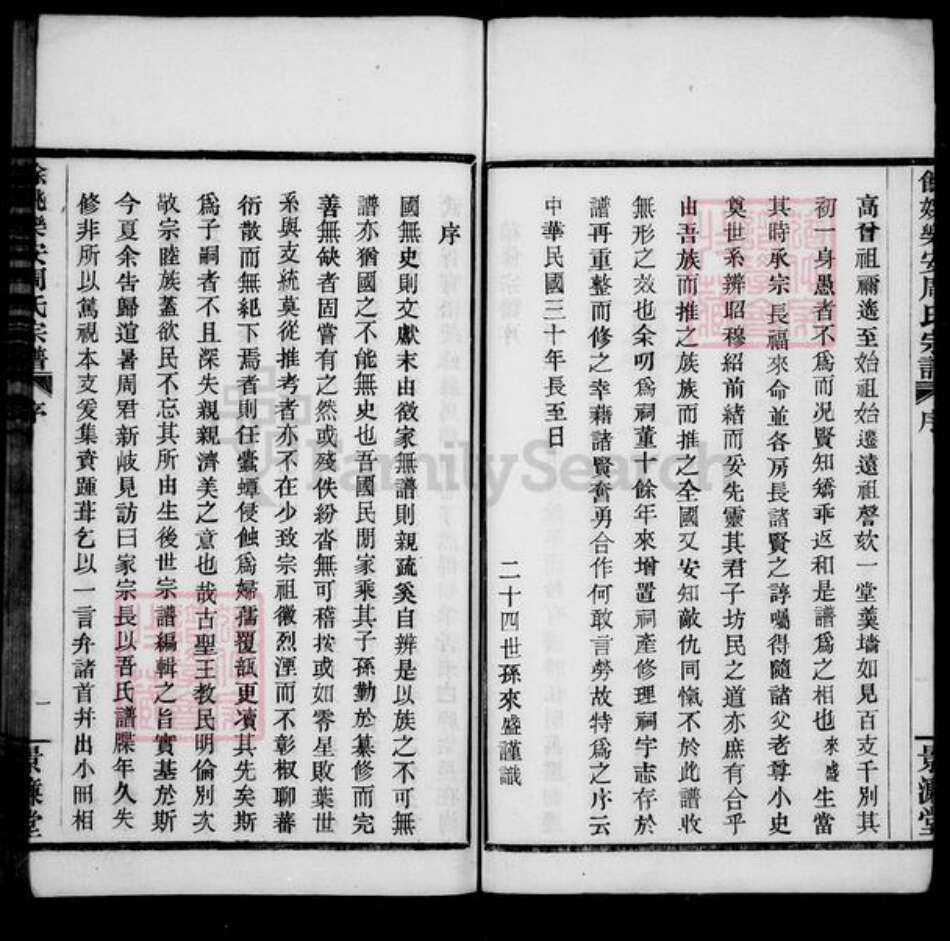 高曾祖禰迤至始祖始遷遠祖謦欬一堂羹墻如見百支千別其
初一身愚者不爲而况賢知矯乖返和是譜爲之相也來盛生當
其時承宗長福來命並各房長諸賢之諄囑得隨諸父老尊小史
奠世系辨昭穆紹前緒而妥先靈其君子坊民之道亦庶有合乎
由吾族而推之族族而推之全國又安知敵仇同愾不於此譜收
無形之效也余叨爲祠董十餘年來增置祠產修理祠宇志存於
譜再重整而修之幸藉諸賢奮勇合作何敢言勞故特爲之序云
中華民國三十年長至日
二十四世孫來盛謹識
餘姚樂安周氏宗譜 序 景濂堂
序
國無史則文獻末由徵家無譜則親疏奚自辨是以族之不可無
譜亦猶國之不能無史也吾國民閒家乘其子孫勤於纂修而完
善無缺者固嘗有之然或殘佚紛沓無可稽按或如零星敗葉世
系與支統莫從推考者亦不在少致宗祖徽烈湮而不彰椒聊蕃
衍散而無紀下焉者則任蠹蟫侵蝕爲婦孺覆瓿更瀆其先矣斯
爲子嗣者不且深失親親濟美之意也哉古聖王教民明倫別次
敬宗睦族蓋欲民不忘其所由生後世宗譜編輯之旨實基於斯
今夏余告歸逭暑周君新岐見訪曰家宗長以吾氏譜牒年久失
修非所以篤視本支爰集賚踵葺乞以一言弁諸首幷出小冊相
餘姚樂安周氏宗譜 序 一 景濂堂
FamilySearch